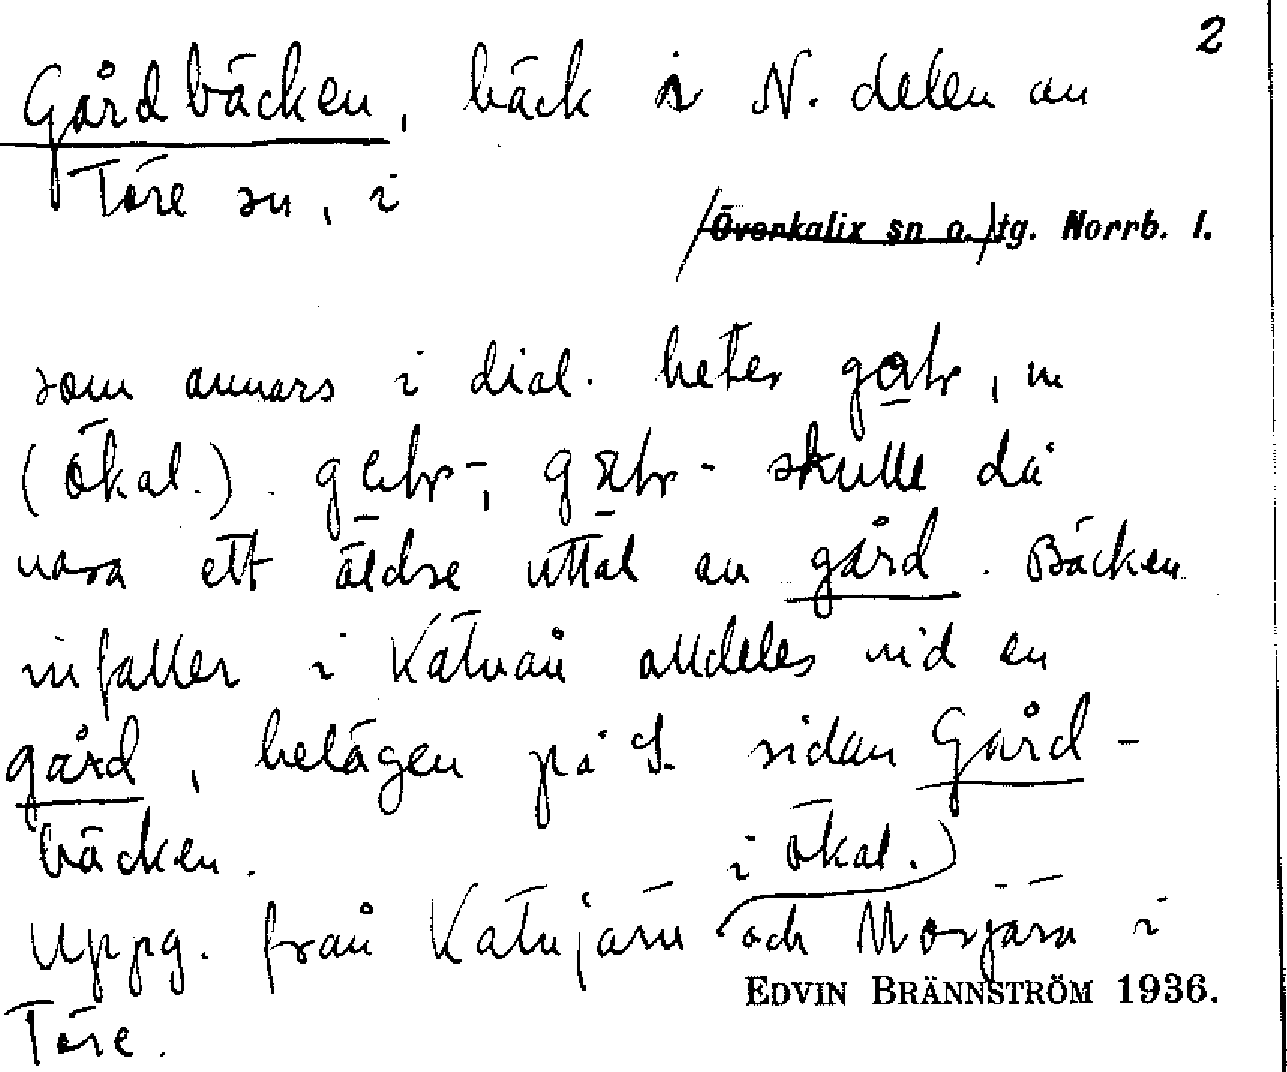 2
Gårdbäcken, bäck i N. delen av
Töre sn, i
Överkalix sn o. tg. Norrb. l.
som annars i dial. heter m
(Ökal.). skulle då
vara ett äldre uttal av gård. Bäcken
infaller i Kätvån alldeles vid en
gård, belägen på S. sidan Gård-
bäcken.
i Ökal.)
Uppg. från Kätvjärv och Morjärv i
EDVIN BRÄNNSTRÖM 1936.
Töre.